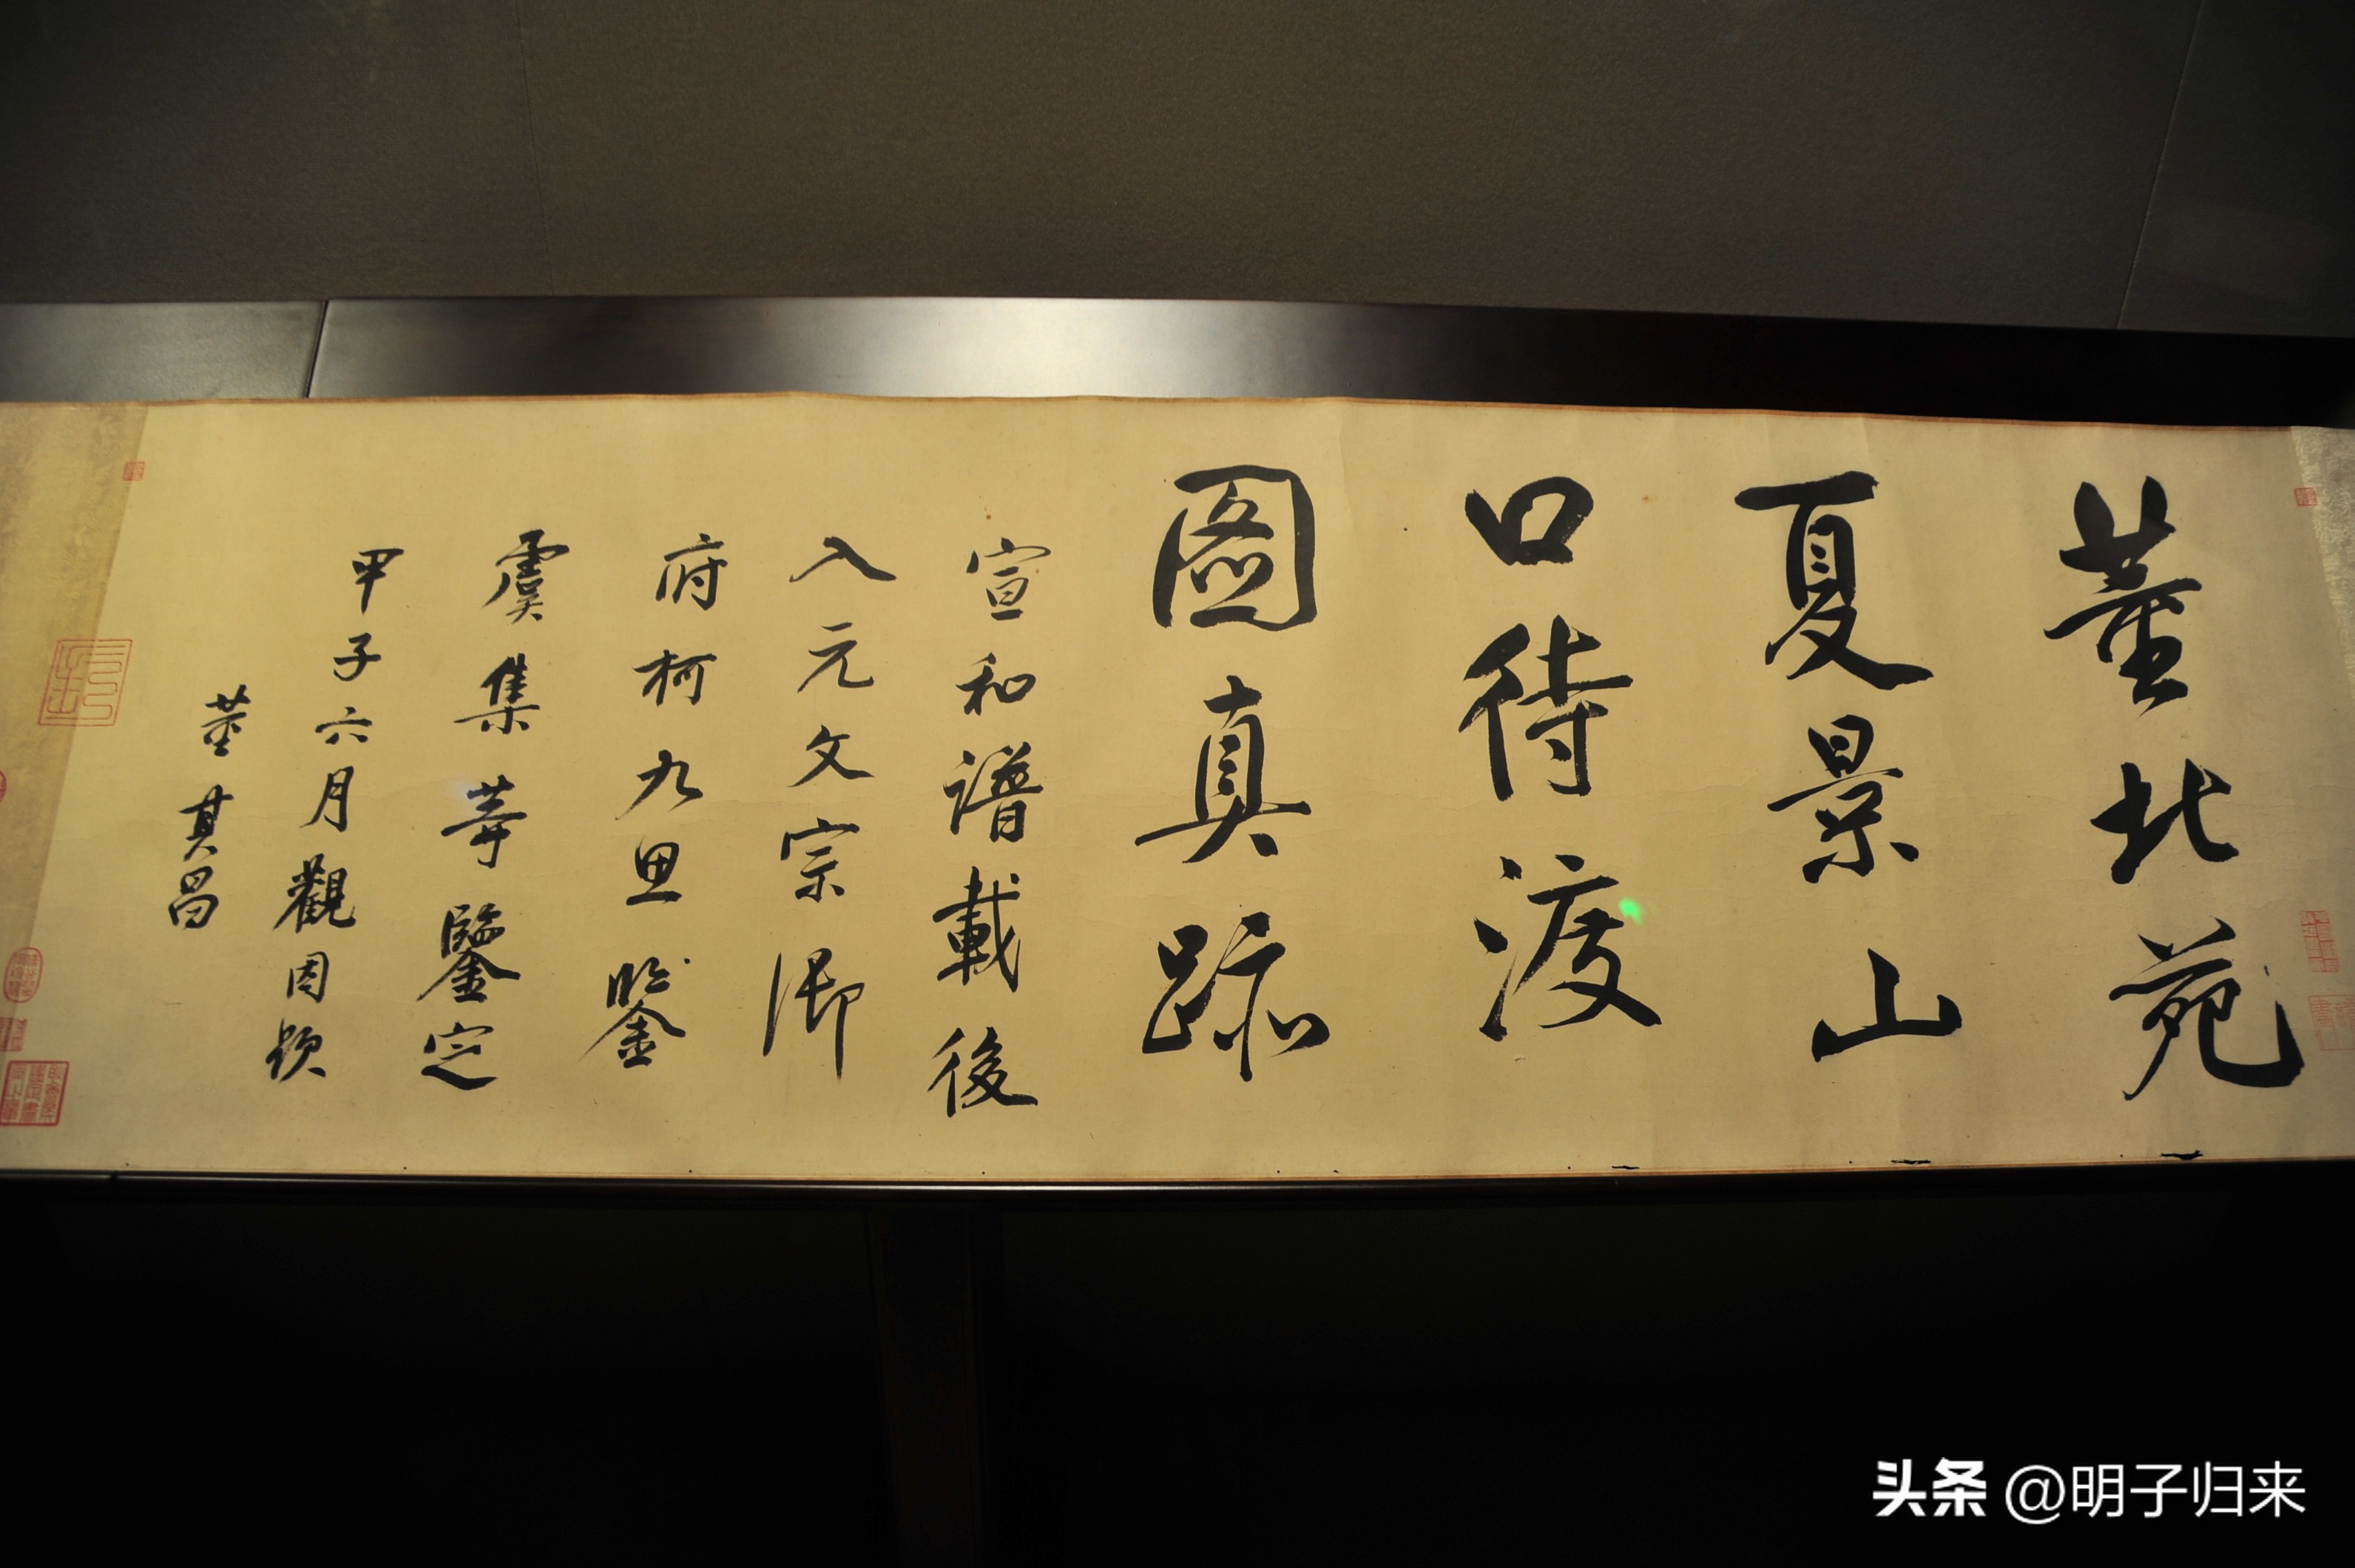 董北苑
夏景山
口待渡
圖真跡
宣和譜載後
入元文宗御
府柯九思鑒
虞集等鑒定
甲子六月觀因題
董其昌
头条 @明子归来